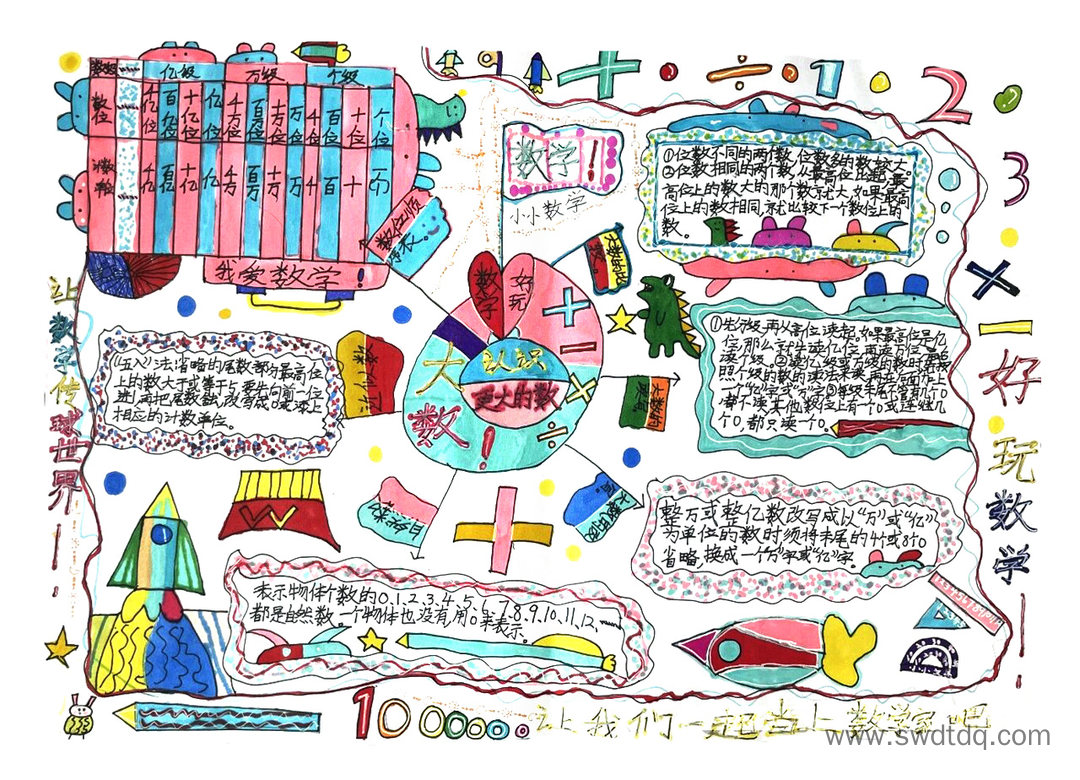 数级 亿级 万级 个级
数位 千亿位 百亿位 十亿位 亿位 千万位 百万位 十万位 万位 千位 百位 十位 个位
计数单位 千亿 百亿 十亿 亿 千万 百万 十万 万 千 百 十 一(个)
数位顺序表。
我爱数学!
数学!
小小数学
1 2 3
①位数不同的两个数,位数多的数较大
②位数相同的两个数,从最高位比起,最
高位上的数大的那个数就大,如果最高
位上的数相同,就比较下一个数位上的
数。
数学
好玩
大数!
认识
更大的数
近似数
自然数
让数学传球世界——!
好玩数学——!
(五入)法省略的尾数部分最高位
上的数大于或等于5,要先向前一位
进1,再把尾数舍去,改写成0或添上
相应的计数单位。
①先分级,再从高位读起。如果最高位是亿
0,都只读一个0。
整万或整亿数改写成以“万”或“亿”
为单位的数时,须将末尾的4个或8个0
省略,换成一个“万”字或“亿”字。
表示物体个数的0.1.2.3.4.5.6.7.8.9.10.11.12、……
都是自然数。一个物体也没有,用0来表示。
1000000。让我们一起当上数学家吧
www.swdtdq.com